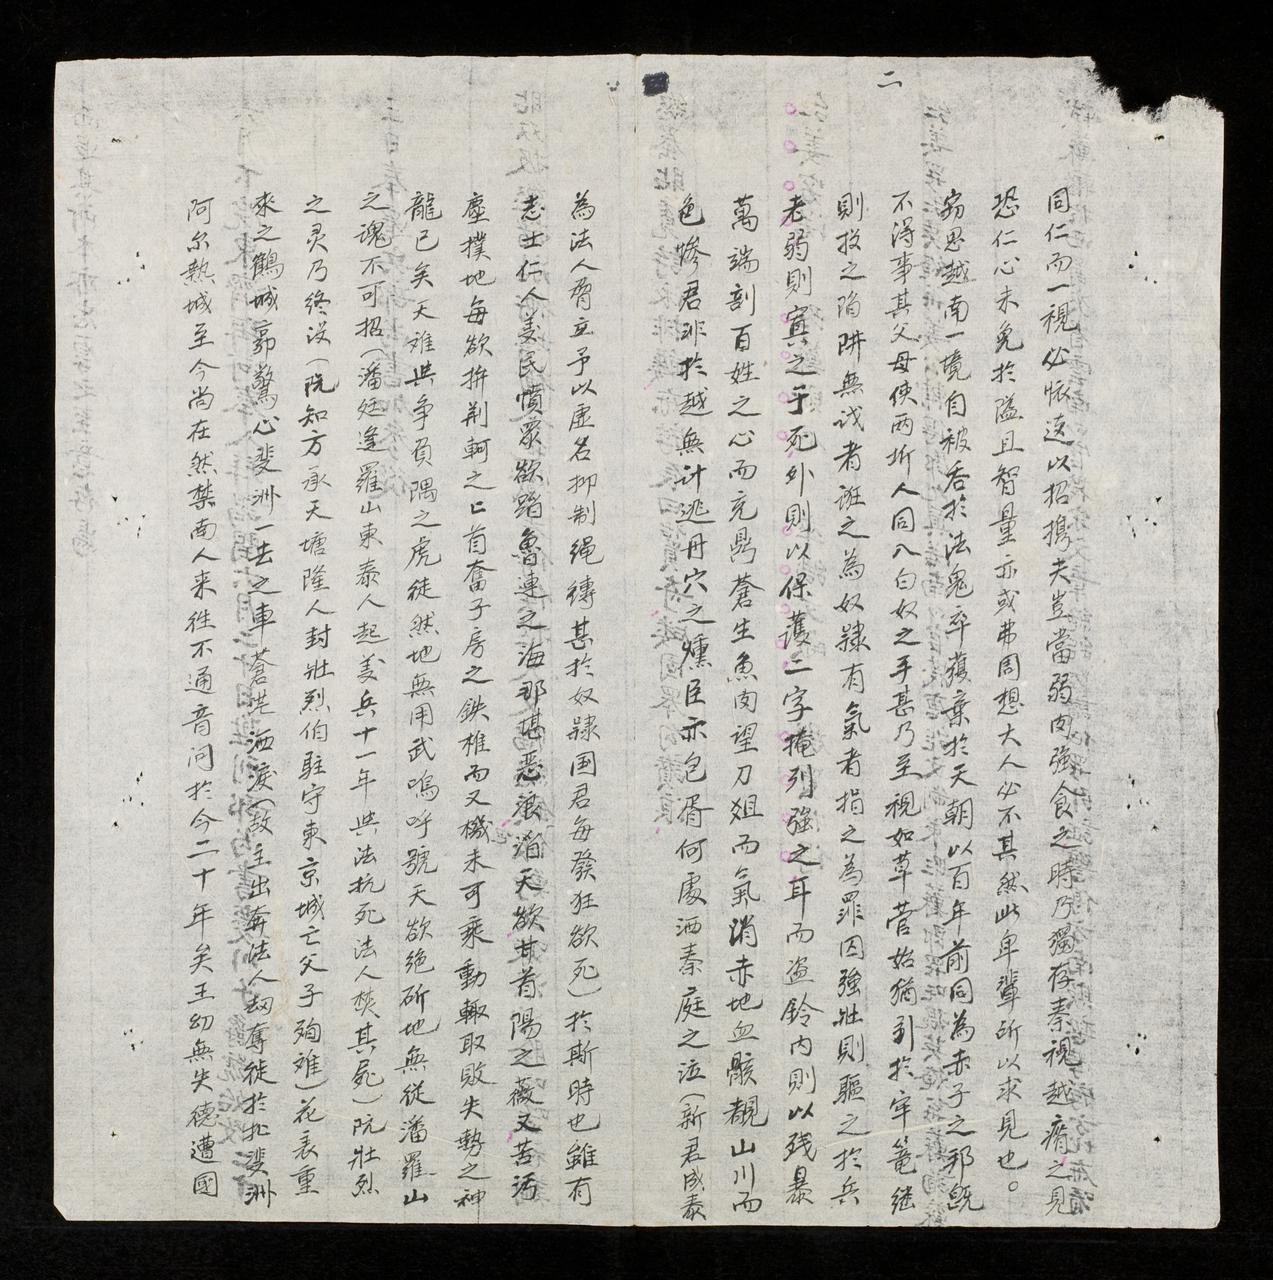 二
同仁而一視必恢遠以招携夫豈當弱肉強食之時乃獨存秦視越瘠之見
恐仁心未免於隘且智量亦或弗周想大人必不其然此卑輩所以求見也。
窃思越南一境自被吞於法鬼卒獲棄於天朝以百年前同為赤子之邦既
不得事其父母使両圻人同入白奴之手甚乃至視如草菅始猶引於牢篭継
則投之陷阱無識者誑之為奴隸有氣者指之為罪囚強壯則驅之於兵
老弱則寘之于死外則以保護二字掩列強之耳而盗鈴内則以残暴
萬端剖百姓之心而充鼎蒼生魚肉望刀俎而氣消赤地血骸覩山川而
色慘君非於越無計逃丹穴之燻臣亦包胥何處洒秦庭之泣(新君成泰
為法人脅立予以虚名抑制绳縛甚於奴隸国君每發狂欲死)於斯時也雖有
志士仁人義民憤眾欲蹈魯連之海那堪惡浪滔天欲甘首陽之薇又苦污
塵撲地每欲拚荆軻之匕首奮子房之鉄椎而又機未可乘動輙取敗失勢之神
龍已矣天难與争負隅之虎徒然地無用武嗚呼號天欲絶斫地無従潘羅山
之魂不可招(潘廷逢羅山東泰人起義兵十一年與法抗死法人焚其屍)阮壯烈
之灵乃終没(阮知方承天塘隆人封壯烈伯駐守東京城亡父子殉难)花表重
來之鶴城郭驚心斐洲一去之車蒼茫洒淚(故主出奔法人刼奪徙於北斐洲
阿尔熱城至今尚在然禁南人来徃不通音问於今二十年矣王幼無失德遭國